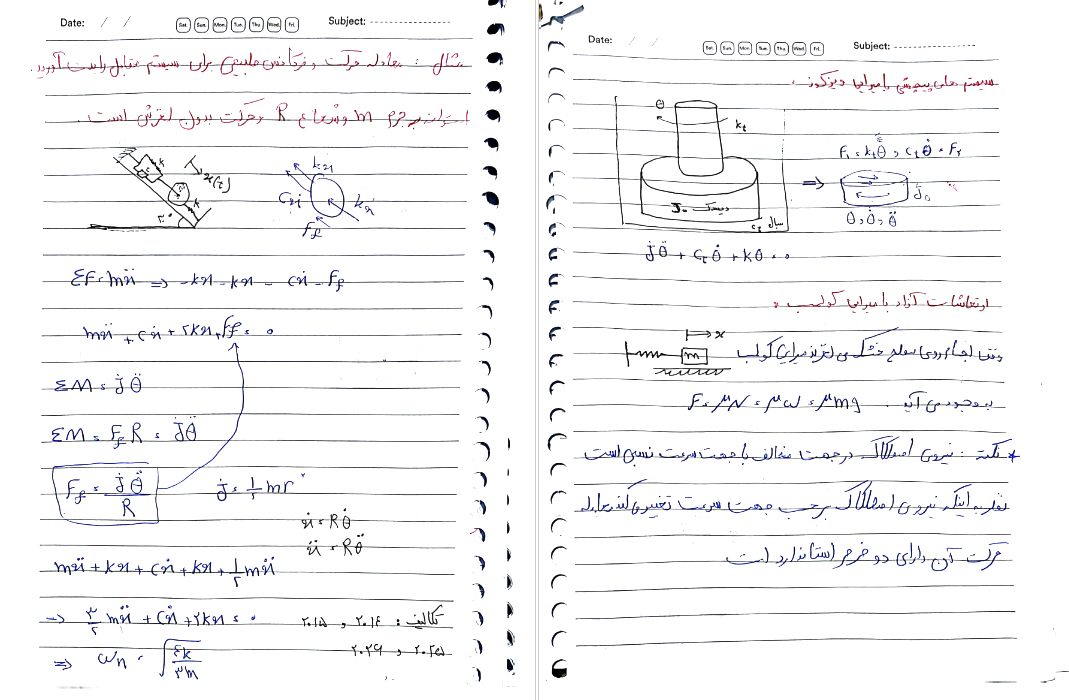 Date: / / Sat. Sun. Mon. Tue. Thu. Wed. Fri. Subject:
مثال : معادله حرکت و فرکانس طبیعی برای سیستم مقابل را بدست آورید.
استوانه به جرم m و شعاع R و حرکت بدون لغزش است.
x(t)
k
c
m
k
۳۰°
kx
cẋ
kx
F_f
ΣF = mẍ => -kx - kx - cẋ - F_f
mẍ + cẋ + ۲kx + F_f = ۰
ΣM = J θ̈
ΣM = F_f R = J θ̈
F_f = J θ̈ / R
J = ۱/۲ mr²
ẋ = Rθ̇
ẍ = Rθ̈
mẍ + kx + cẋ + kx + ۱/۲ mẍ
=> ۳/۲ mẍ + cẋ + ۲kx = ۰
تکالیف : ۲.۱۴ و ۲.۱۵
۲.۲۵ و ۲.۲۹
=> ωn = √(۴k/۳m)
Date: / / Sat. Sun. Mon. Tue. Thu. Wed. Fri. Subject:
سیستم های پیچشی با میرایی ویزکوز.
θ
k_t
دیسک J₀
سیال c_t
=>
F₁ = k_t θ , c_t θ̇ = F₂
J₀
θ, θ̇, θ̈
J θ̈ + c_t θ̇ + kθ = ۰
ارتعاشات آزاد با میرایی کولمب :
x
m
وقتی اجسام روی سطح خشک می لغزند میرایی کولمب
به وجود می آید. F = μN = μW = μmg
* نکته : نیروی اصطکاک در جهت مخالف با جهت سرعت نسبی است
نظر به اینکه نیروی اصطکاک برحسب جهت سرعت تغییر می کند معادله
حرکت آن دارای دو فرم استاندارد است